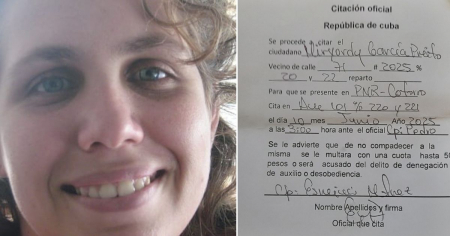 Citación oficial
República de cuba
Se procede a citar el
ciudadano Miryorly García Prieto
Vecino de calle 71 # 2025 %
20 y 22 reparto
Para que se presente en PNR-Cotorro
Cita en Ave 101 % 220 y 221
el dia 10 mes Junio Año 2025
a las 3:00 hora ante el oficial Cpi Pedro
Se le advierte que de no compadecer a la
misma se le multara con una cuota hasta 50
pesos o será acusado del delito de denegación
de auxilio o desobediencia.
Nombre Apellidos y firma
Oficial que cita